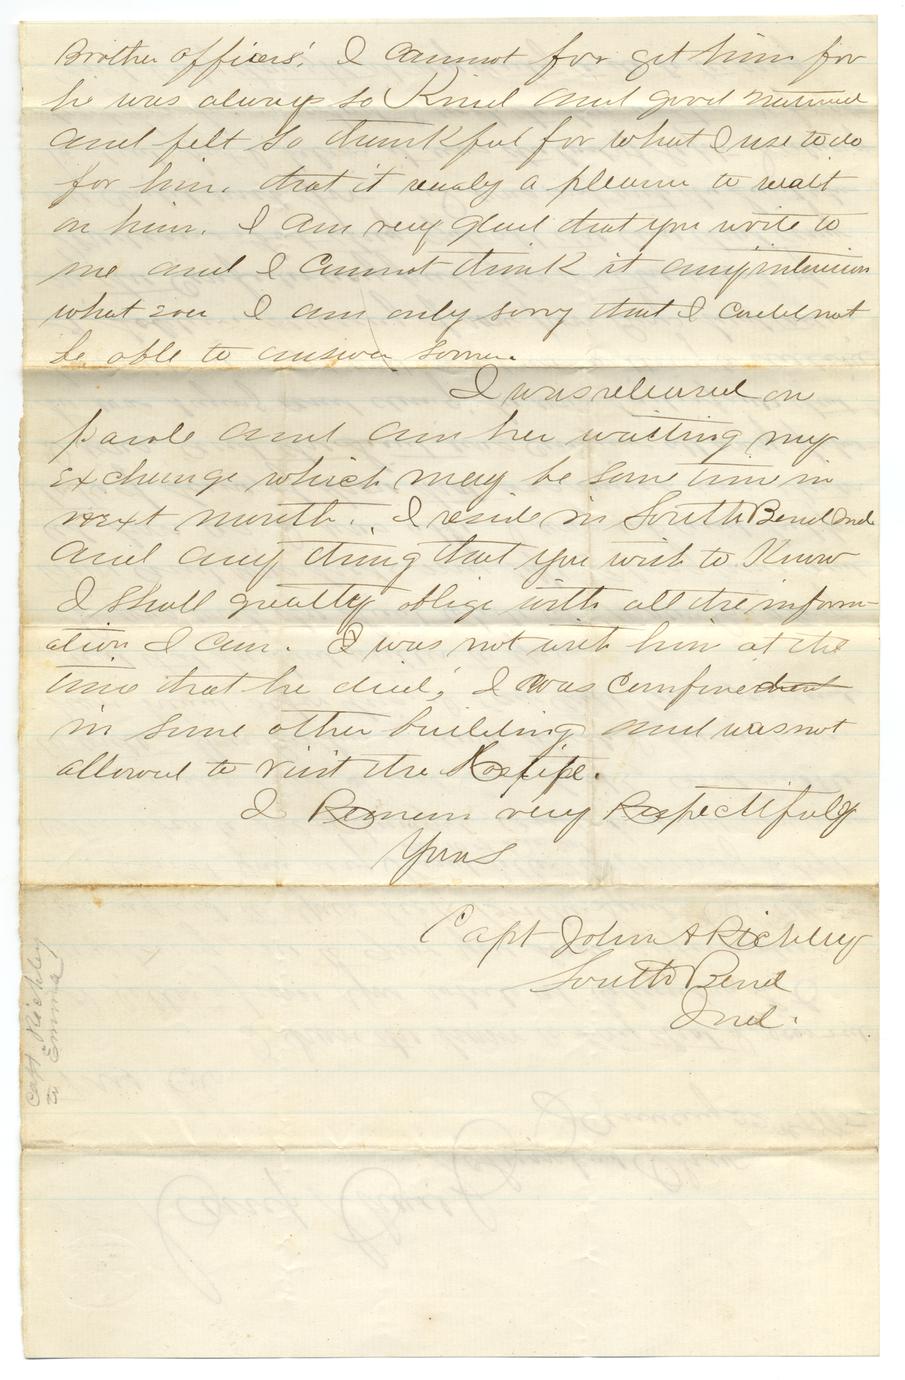 Brother officers! I cannot for get him for
he was always so Kind and good natured
and felt so thankful for what I use to do
for him, that it realy a pleasure to wait
on him. I am very glad that you write to
me and I cannot think it any intrusion
what ever I am only sorry that I could not
be able to answer sooner.
I was released on
parole and am her waiting my
exchange which may be some time in
next month. I reside in South Bend Ind
and any thing that you wish to Know
I shall greatly oblige with all the inform-
ation I can. I was not with him at the
time that he died; I was confined
in some other building and was not
allowed to visit the
I Remain very Respectifuly
Yours
Capt John A Richley
South Bend
Ind.
Capt. Richley
to Emma